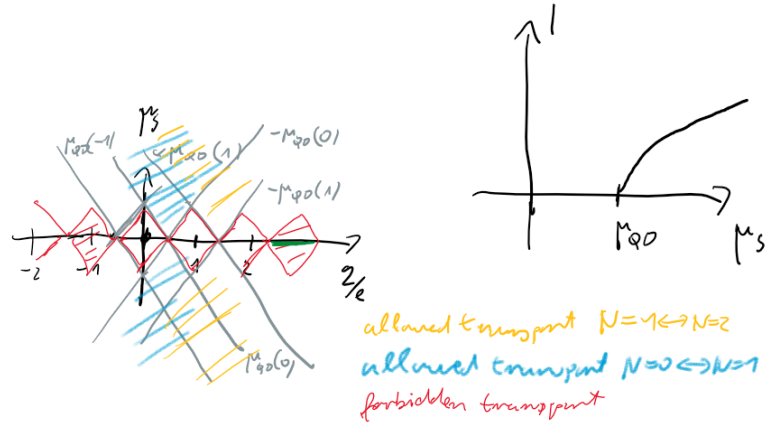 I
μs
μQD(-1)
μQD(1)
-μQD(0)
-μQD(1)
-2
-1
1
2
q/e
μQD
μs
μQD(0)
allowed transport N=1↔N=2
allowed transport N=0↔N=1
forbidden transport